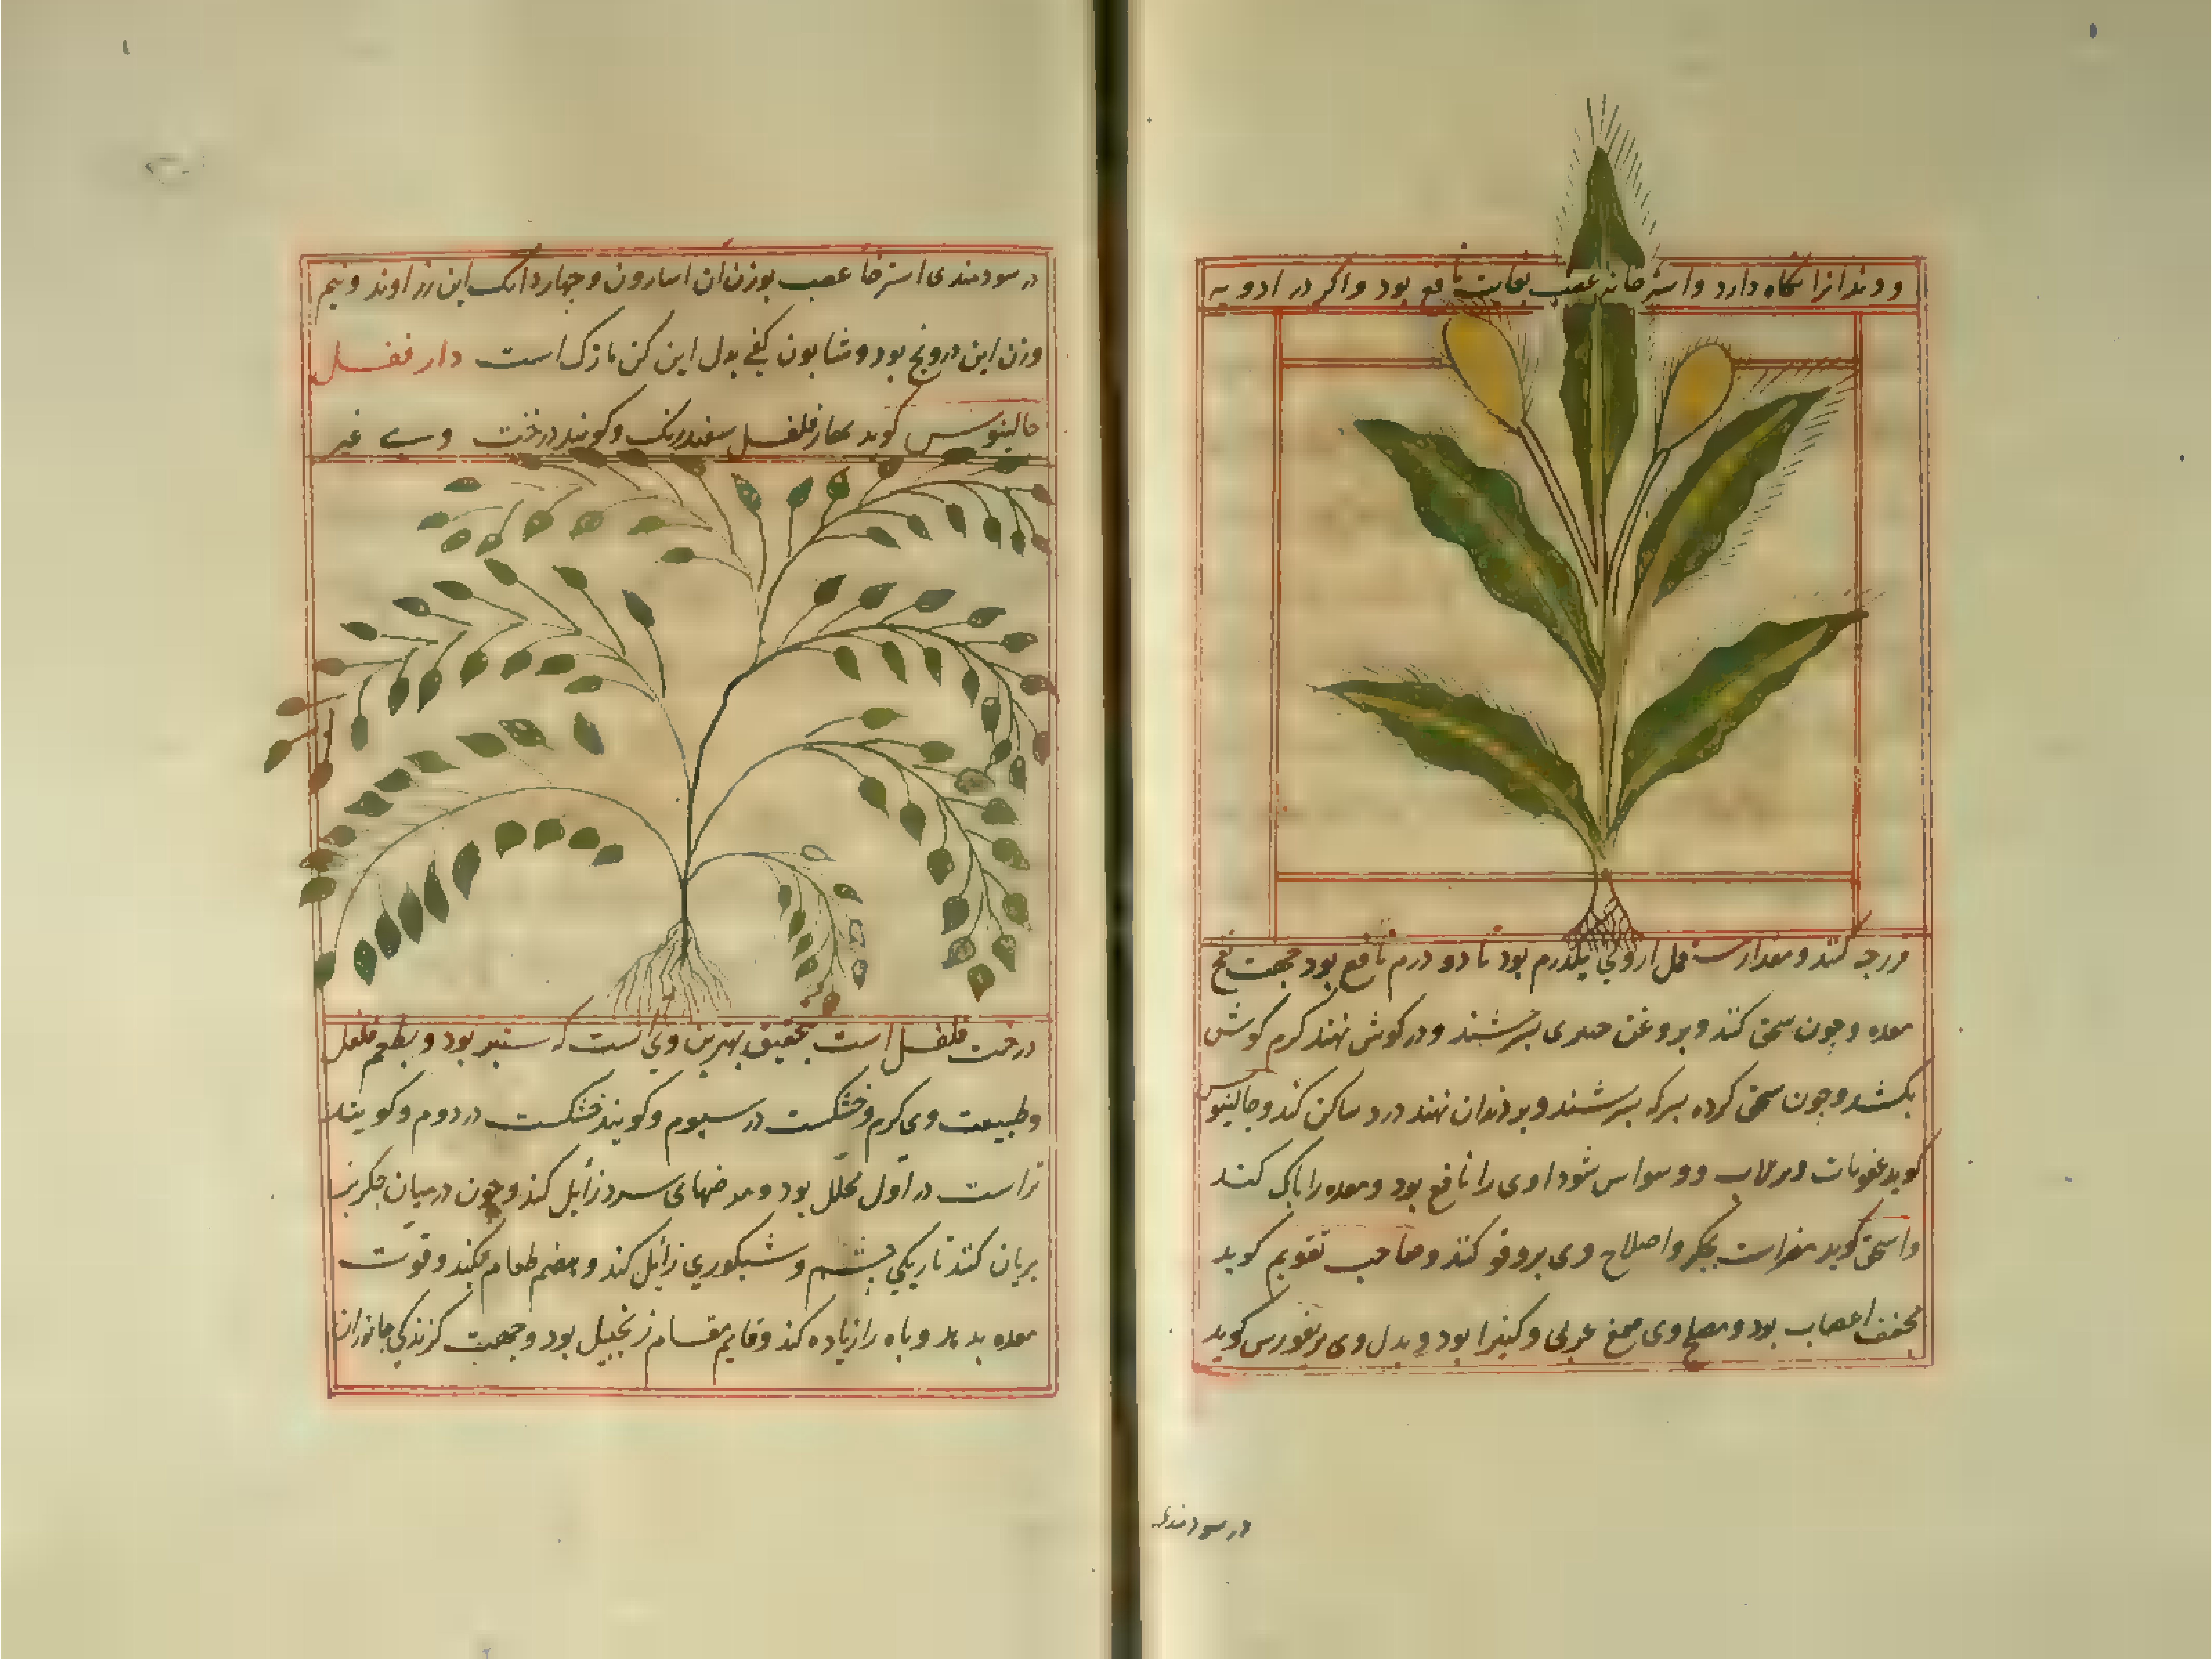 ودندانرا نکاه دارد و استرخاء عصب بغایت نافع بود و اکر در ادویه
فرزجه کنند و مقدار مستعمل از وی یکدرم بود تا دو درم نافع بود جهت نفخ
معده و چون سحق کنند و بروغن خیری بسرشند و در کوش نهند کرم کوش
بکشد و چون سحق کرده بسرکه بسرشند و بر دندان نهند درد ساکن کند و جالینوس
کوید و وسواس سوداوی را نافع بود و معده را پاک کند
و اسحق کوید مضر است بجکر و اصلاح وی کنند و صاحب تقویم کوید
مجفف اعصاب بود و مصلح وی صمغ عربی و کتیرا بود و بدل وی کوید
در سودمندی
در سودمندی استرخا عصب بوزن ان اسارون و چهار دانک این زراوند و نیم
وزن این درونج بود و شابون کفی بدل این کزمازک است دار فلفل
جالینوس کوید بهار فلفل سفیدرنک و کویند درخت وی غیر
درخت فلفل است بتحقیق بهترین وی آنست که ستبر بود و بطعم فلفل
و طبیعت وی کرم و خشکست در سیوم و کویند خشکست در دوم و کویند
تر است در اول محلل بود و مرضهای سرد زایل کند و چون در میان جکر بز
بریان کنند تاریکی چشم و شبکوری زایل کند و هضم طعام بکند و قوت
معده بدهد و باه را زیاده کند و قایم مقام زنجبیل بود و جهت کزندکی جانوران